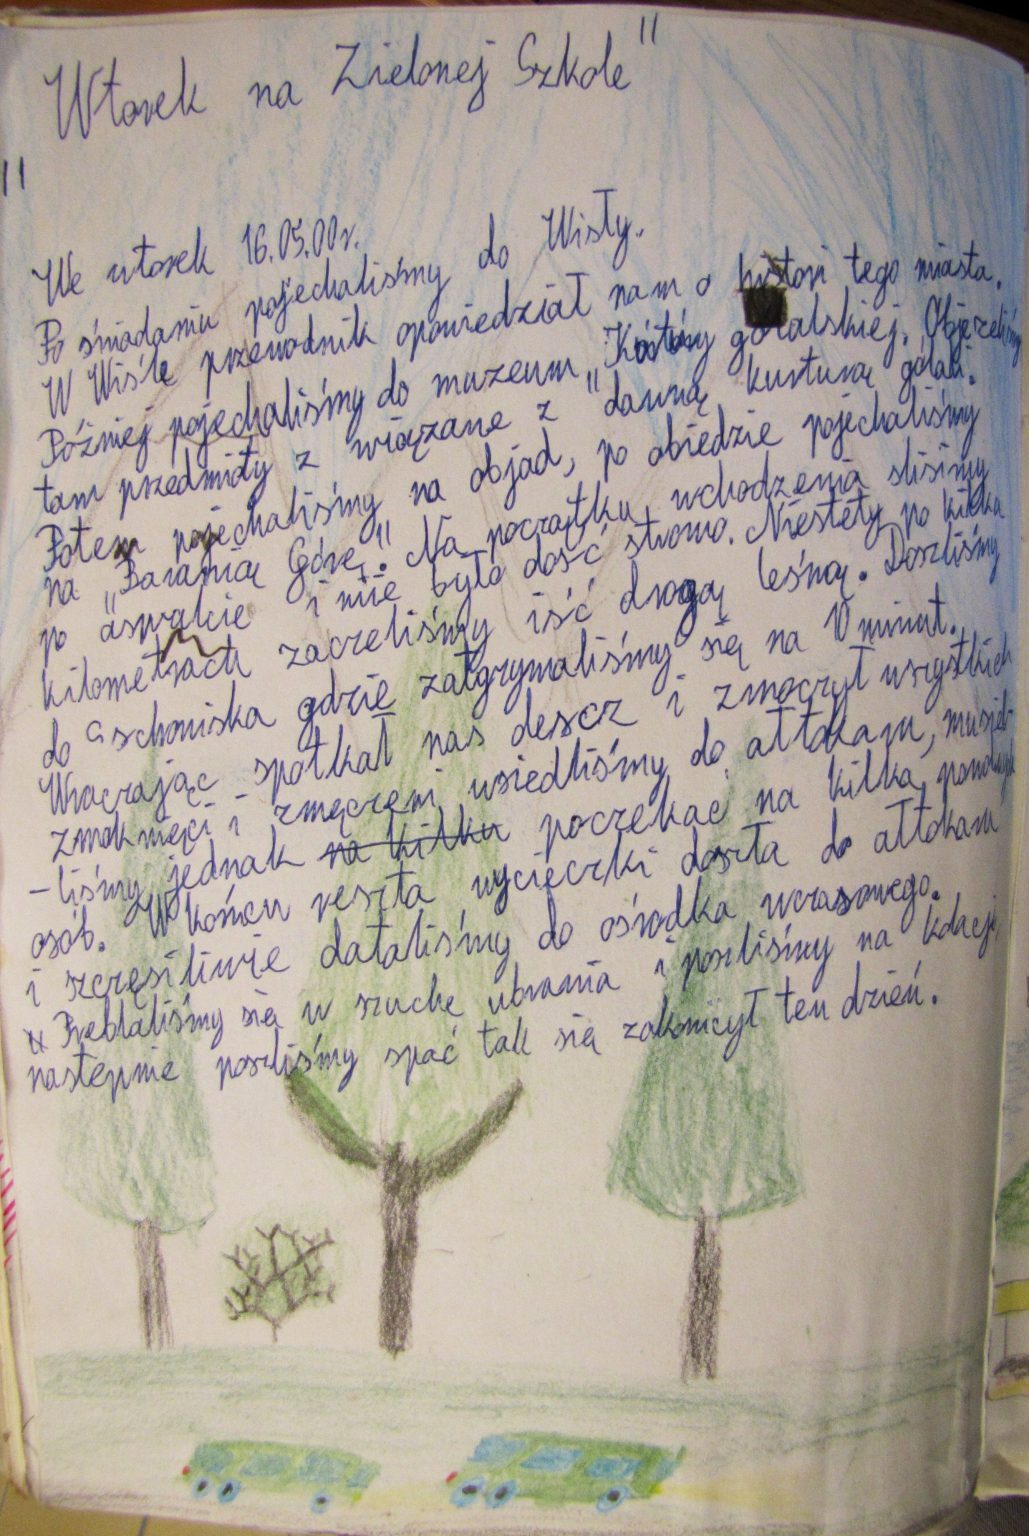 "Wtorek na Zielonej Szkole"
We wtorek 16.05.00r.
Po śniadaniu pojechaliśmy do Wisły.
W Wiśle przewodnik opowiedział nam o histori tego miasta.
Później pojechaliśmy do muzeum góralskiej. Objerzeliśmy
tam przedmioty z wiązane z "dawną kurturą górali.
Potem pojechaliśmy na objad, po obiedzie pojechaliśmy
na "Baranią Górę." Na początku wchodzenia sliśimy
po aswalcie i nie było dość stromo. Niestety po kilka
kilometrach zaczeliśmy iść drogą leśną. Doszliśmy
do schoniska gdzie zatgrymaliśmy się na 10 minut.
Wracrając spotkał nas descz i zmoczył wszystkich
zmoknięci i zmęczeni wsiedliśmy do attokaru, musie
-liśmy jednak na kilku poczekać na kilka
osób. W końcu reszta wycieczki doszła do attokaru
i szczęsiliwie dataliśmy do ośrodka wczasowego.
Preblaliśmy się w szuche ubrania i poszliśmy na kolacje
następnie poszliśmy spać tak się zakończył ten dzień.